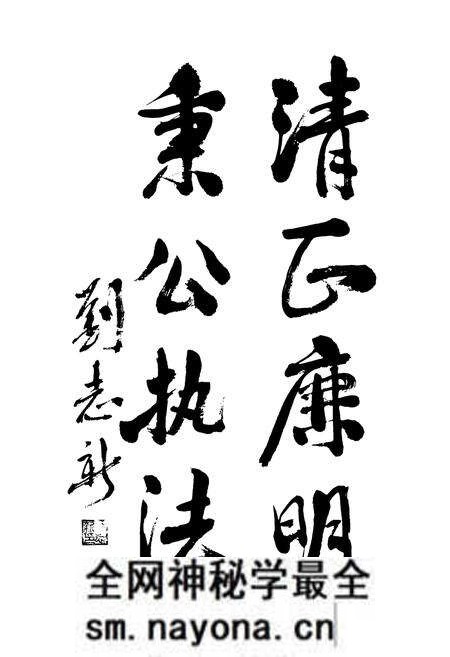 清正廉明
秉公执法
劉志新
全网神秘学最全
sm.nayona.cn